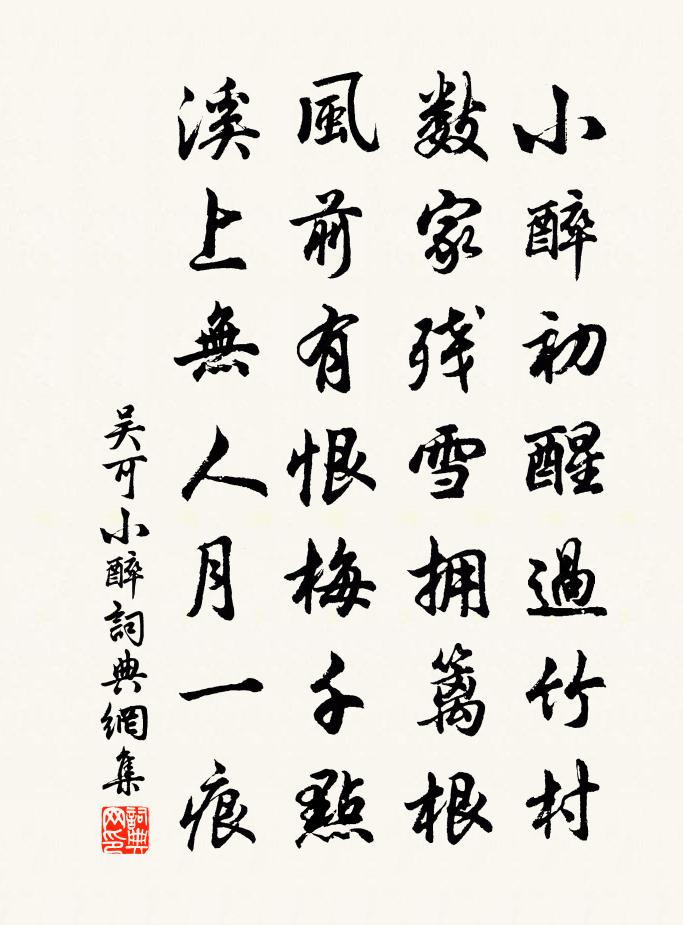 小醉初醒過竹村
數家残雪拥籬根
風前有恨梅千點
溪上無人月一痕
吴可小醉詞典網集
詞典网印